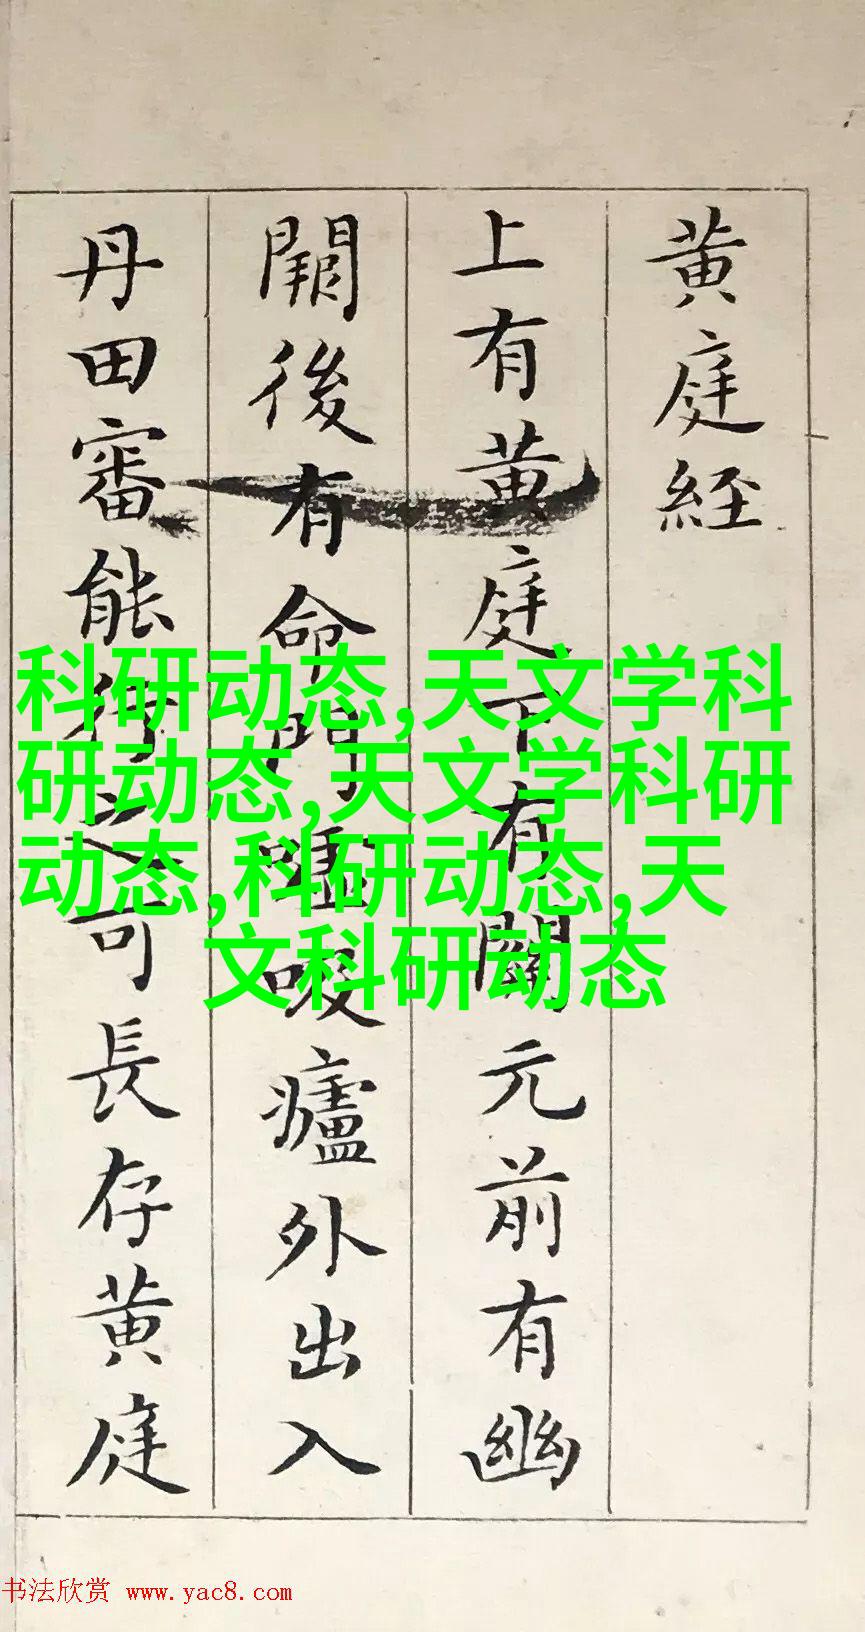 黄庭経
上有黄庭下有關元前有幽
闕後有命門嘘吸廬外出入
丹田審能行之可長存黄庭
科研动态,天文学科
研动态,天文学科研
动态,科研动态,天
文科研动态
书法欣赏 www.yac8.com